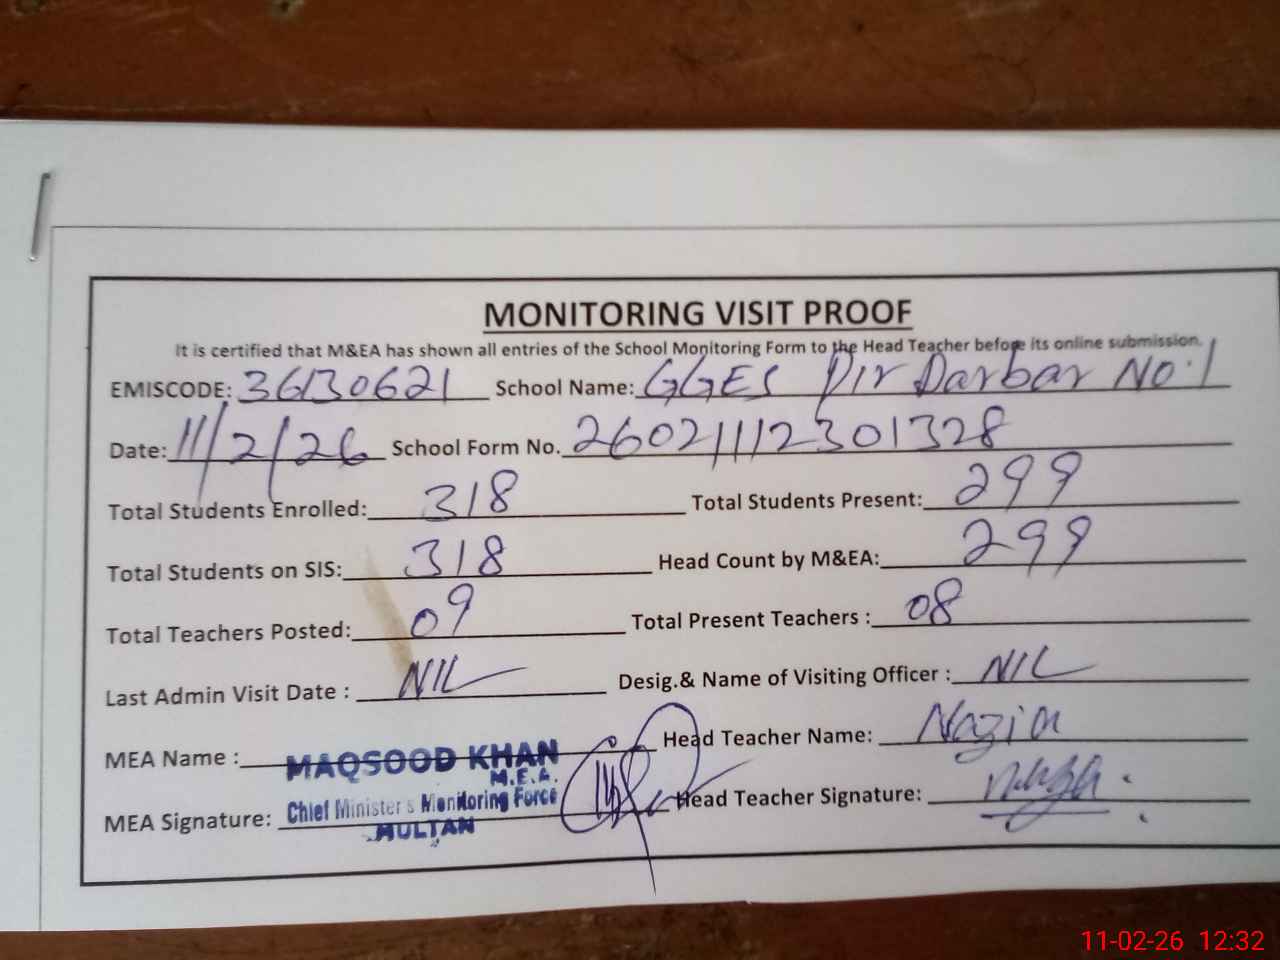 MONITORING VISIT PROOF
It is certified that M&EA has shown all entries of the School Monitoring Form to the Head Teacher before its online submission.
EMISCODE: 36130621 School Name: GGES Pir Darbar No.1
Date: 11/2/26 School Form No. 260211112301328
Total Students Enrolled: 318 Total Students Present: 299
Total Students on SIS: 318 Head Count by M&EA: 299
Total Teachers Posted: 09 Total Present Teachers : 08
Last Admin Visit Date : NIL Desig.& Name of Visiting Officer : NIL
MEA Name : MAQSOOD KHAN Head Teacher Name: Nazia
M.E.A.
MEA Signature: Chief Minister's Monitoring Force Head Teacher Signature:
MULTAN
11-02-26 12:32